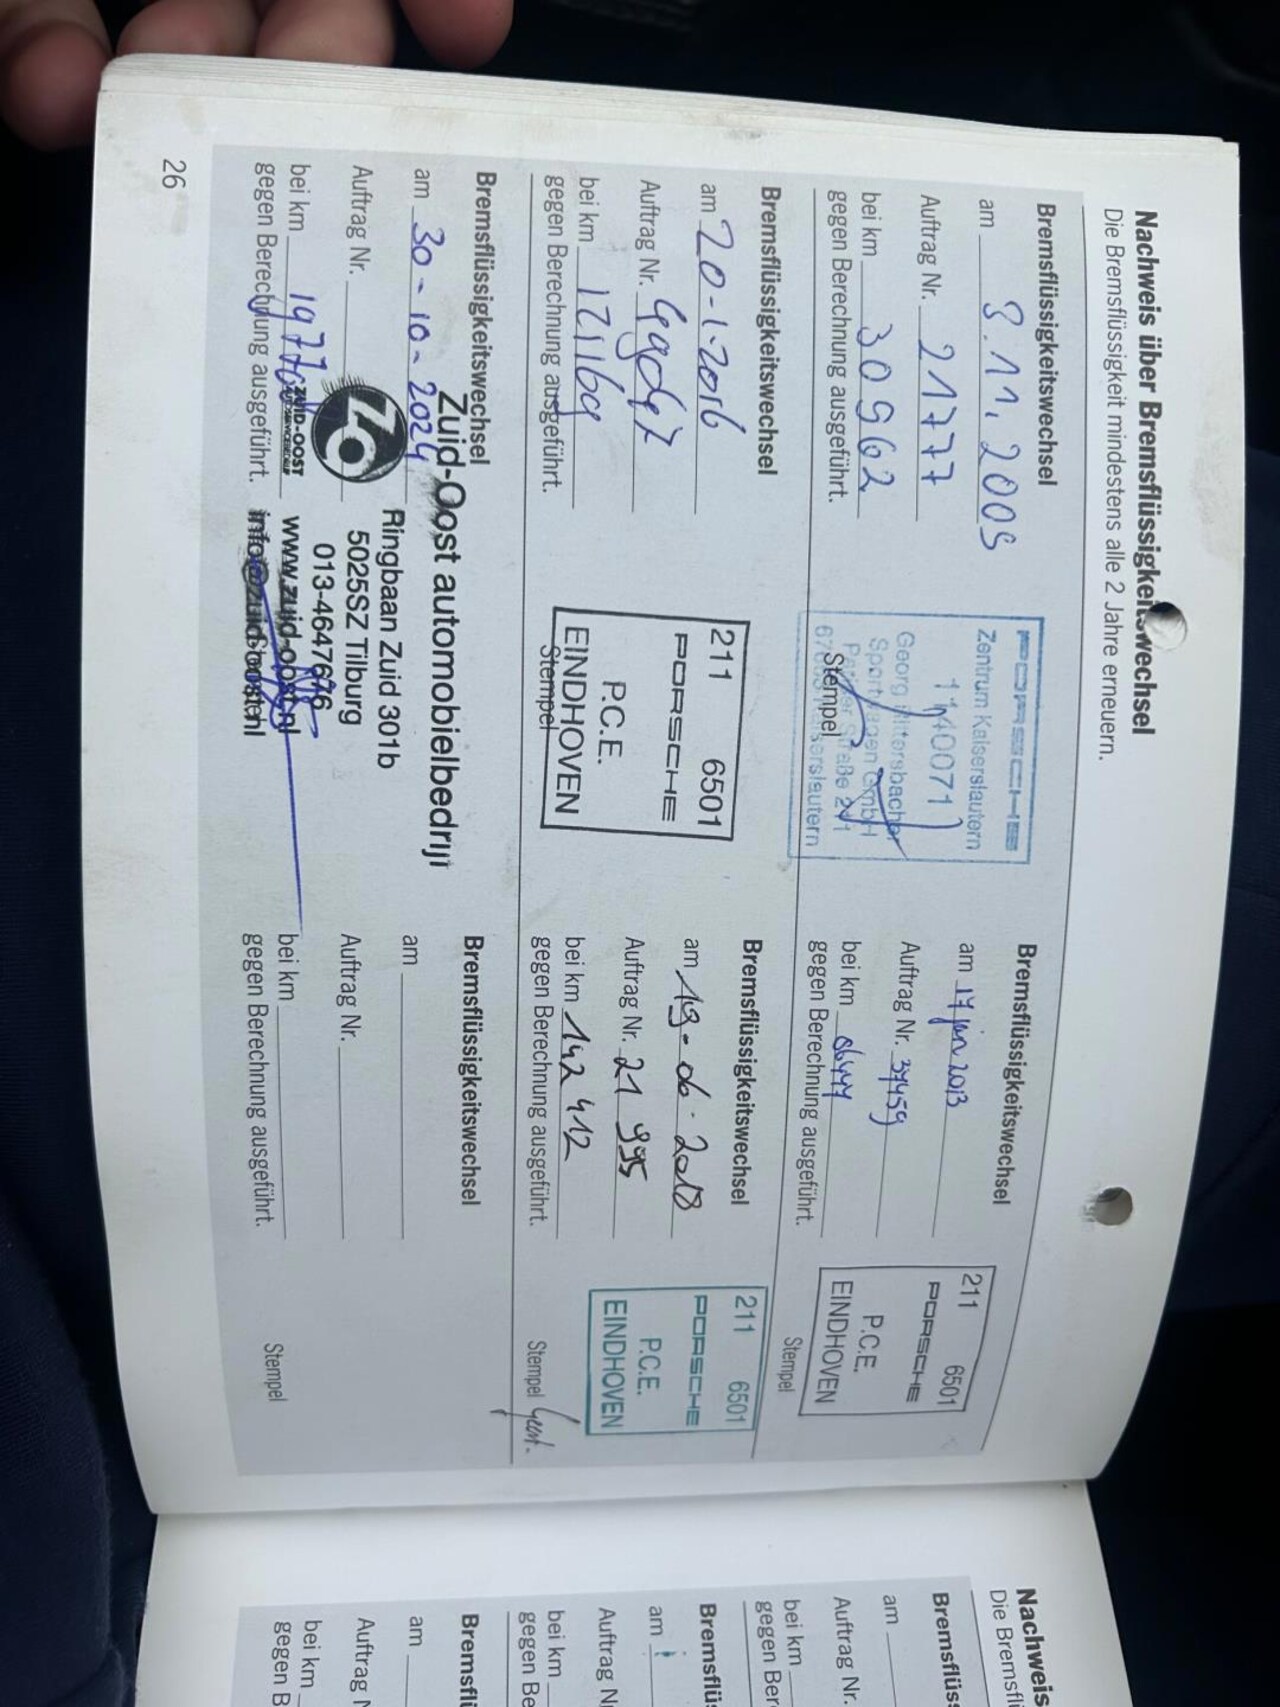 Nachweis über Bremsflüssigkeitswechsel
Die Bremsflüssigkeit mindestens alle 2 Jahre erneuern.
Bremsflüssigkeitswechsel
am 3.11.2009
Auftrag Nr. 21777
bei km 30962
gegen Berechnung ausgeführt.
PORSCHE
Zentrum Kaiserslautern
1140071
Sportwagen GmbH
Stempel
Bremsflüssigkeitswechsel
am 17 jan 2013
Auftrag Nr. 37459
bei km
gegen Berechnung ausgeführt.
211 6501
PORSCHE
P.C.E.
EINDHOVEN
Stempel
Bremsflüssigkeitswechsel
am 20-1-2016
Auftrag Nr.
bei km 121169
gegen Berechnung ausgeführt.
211 6501
PORSCHE
P.C.E.
EINDHOVEN
Stempel
Bremsflüssigkeitswechsel
am 19-06-2018
Auftrag Nr. 21 995
bei km 142 412
gegen Berechnung ausgeführt.
211 6501
PORSCHE
P.C.E.
EINDHOVEN
Stempel
Bremsflüssigkeitswechsel
am 30-10-2024
Auftrag Nr.
bei km
gegen Berechnung ausgeführt.
Zuid-Oost automobielbedrijf
Ringbaan Zuid 301b
5025SZ Tilburg
013-4647676
www.zuid-oost.nl
info@zuid-oost.nl
ZUID-OOST
Stempel
Bremsflüssigkeitswechsel
am
Auftrag Nr.
bei km
gegen Berechnung ausgeführt.
Stempel
26
Nachweis
Die Bremsfl
Bremsflüss
am
Auftrag Nr.
bei km
gegen Ber
Bremsflüs
am
Auftrag N
bei km
gegen Be
Bremsfl
am
Auftrag
bei km
gegen B